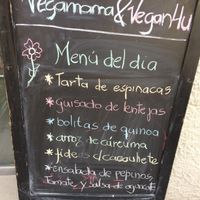 Vegamama & Vegan4U
Menú del día
* Tarta de espinacas
* guisado de lentejas
* bolitas de quinoa
* arroz de cúrcuma
* fideos d cacauhete
* ensalada de pepinos,
Tomate y salsa de aguacate